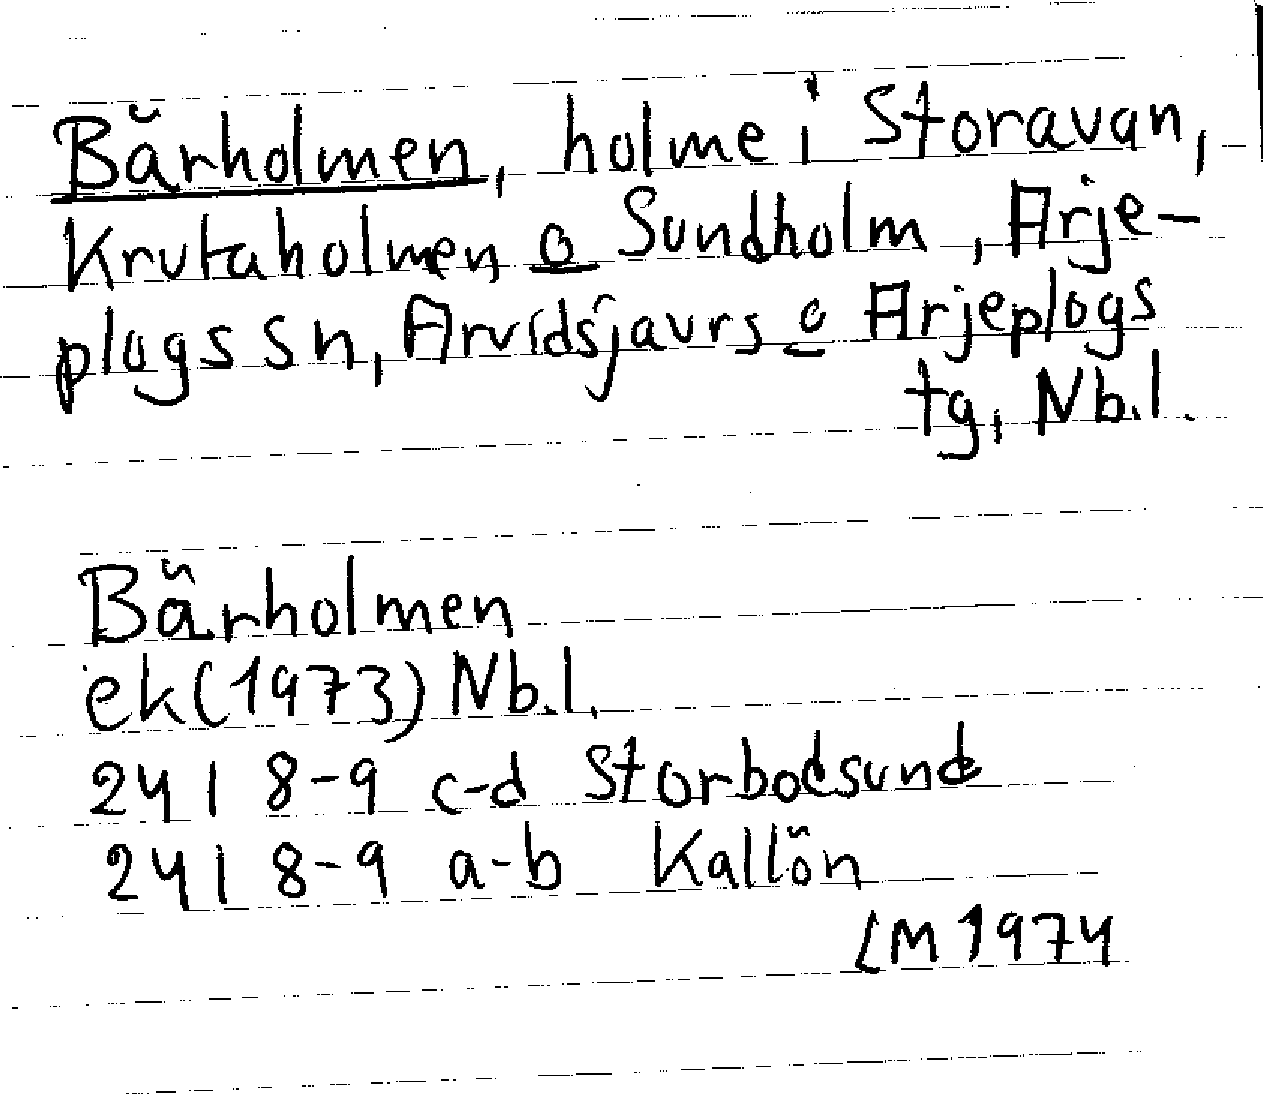 Bärholmen, holme i Storavan,
Krutaholmen o Sundholm, Arje-
plogs sn, Arvidsjaurs o Arjeplogs
tg, Nb.l.
Bärholmen
ek (1973) Nb.l.
24 I 8-9 c-d Storbodsund
24 I 8-9 a-b Kallön
LM 1974